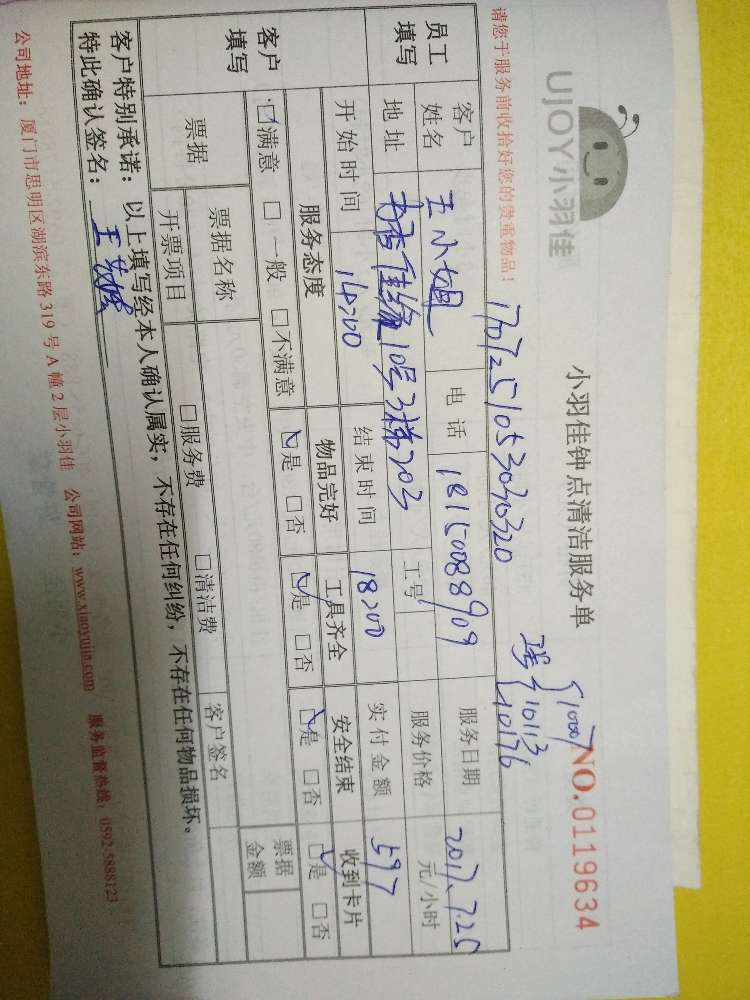 UJOY小羽佳
小羽佳钟点清洁服务单
NO.0119634
请您于服务前收拾好您的贵重物品！
1707251053030320
10007
10113
10176
员工填写
客户姓名 王小姐 电话 18150088909 服务日期 2017.7.25
地址 10号3梯203 工号 服务价格 元/小时
开始时间 14:00 结束时间 18:00 实付金额 597
客户填写
服务态度 物品完好 工具齐全 安全结束 收到卡片
☑满意 □一般 □不满意 ☑是 □否 ☑是 □否 ☑是 □否 ☑是 □否
票据 票据名称 □服务费 □清洁费 客户签名 票据金额
开票项目
客户特别承诺：以上填写经本人确认属实，不存在任何纠纷，不存在任何物品损坏。
特此确认签名：王
公司地址：厦门市思明区湖滨东路319号A幢2层小羽佳 公司网站：www.xiaoyujia.com 服务监督热线：0592-5888123